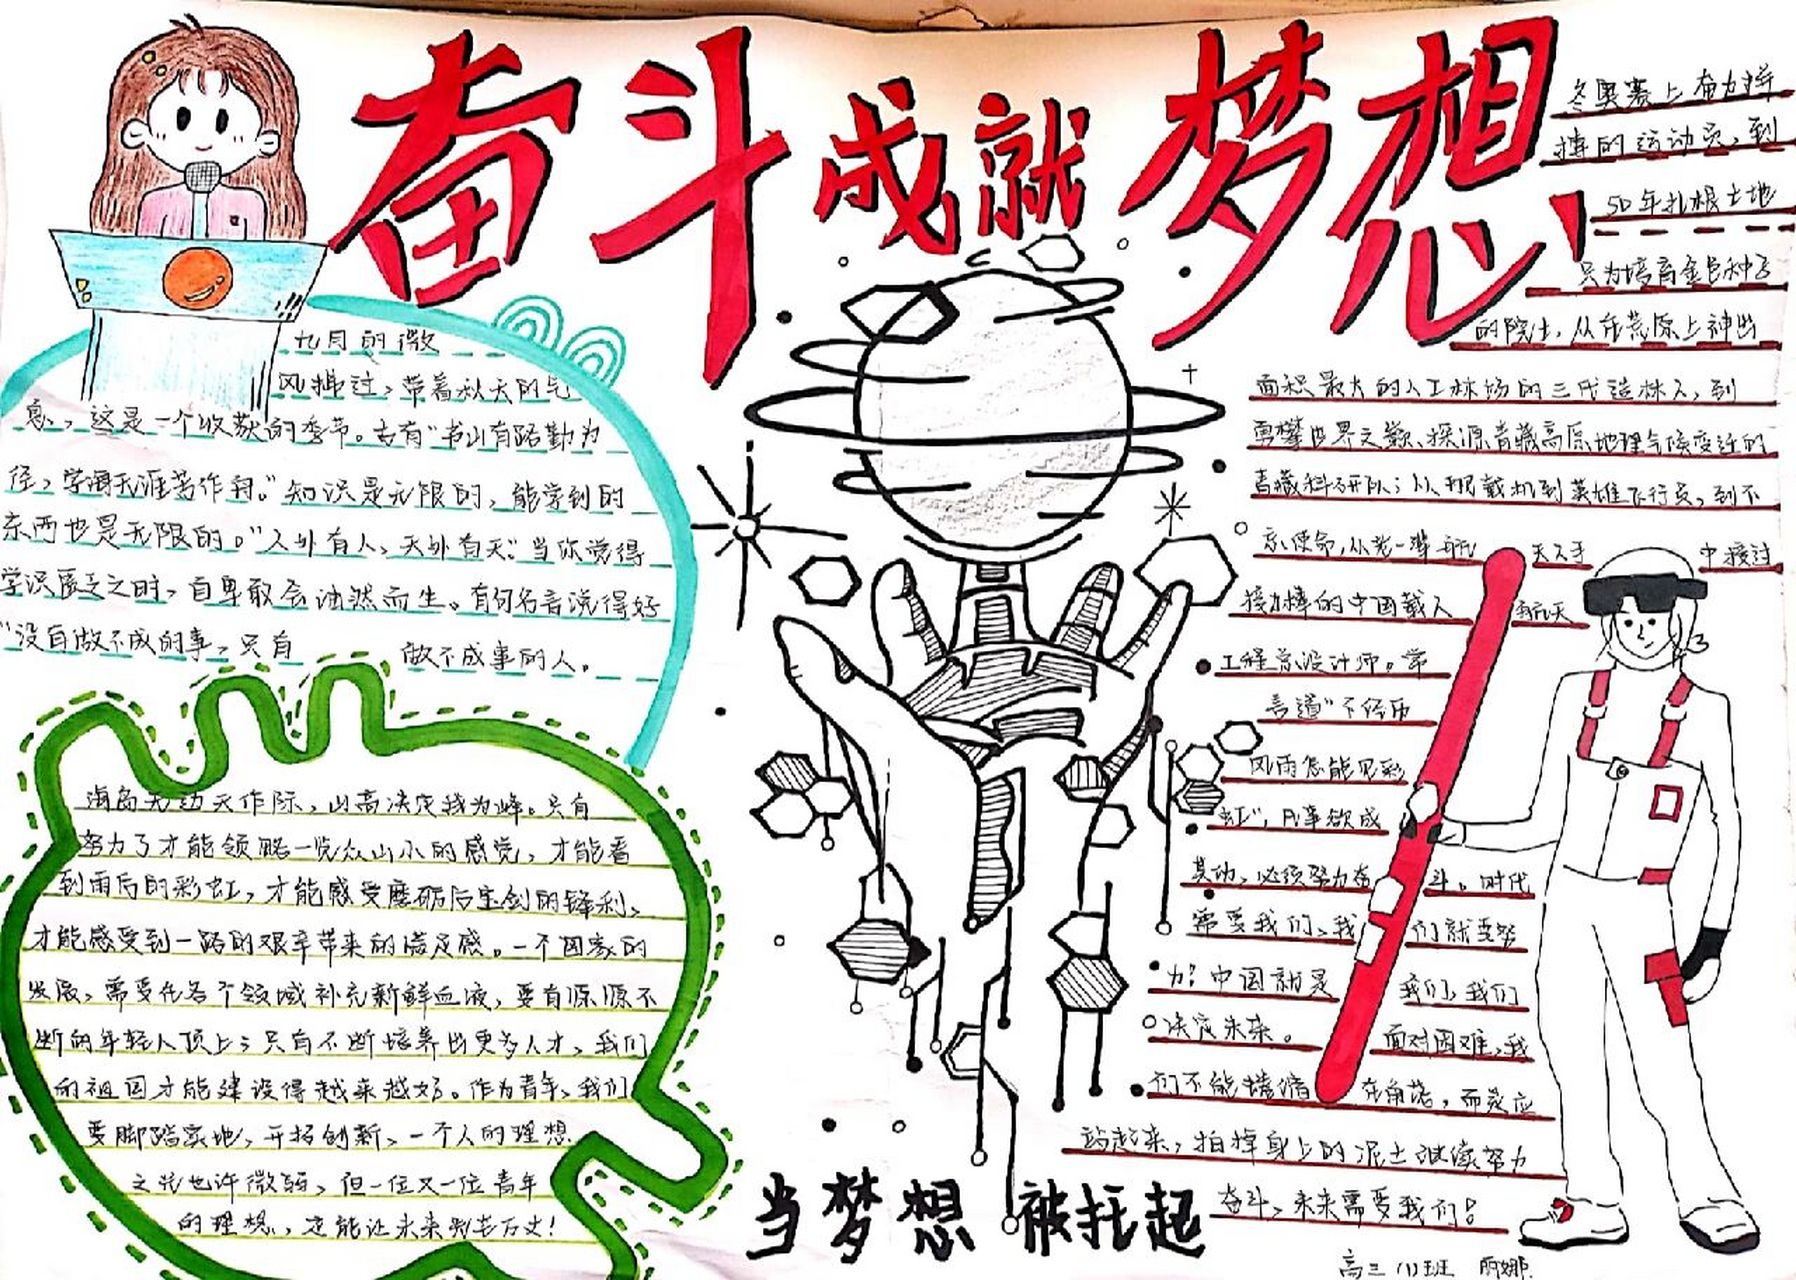 奋斗成就梦想
九月的微
风拂过，带着秋天的气
息，这是一个收获的季节。古有“书山有路勤为
径，学海无涯苦作舟。”知识是无限的，能学到的
东西也是无限的。“人外有人，天外有天”。当你觉得
学识匮乏之时，自卑敢会油然而生。有句名言说得好
“没有做不成的事，只有 做不成事的人。
海岛无边天作际，山高决定我为峰。只有
努力了才能领略一览众山小的感觉，才能看
到雨后的彩虹，才能感受磨砺后宝剑的锋利，
才能感受到一路的艰辛带来的满足感。一个国家的
发展，需要在各个领域补充新鲜血液，要有源源不
断的年轻人顶上；只有不断培养出更多人才，我们
的祖国才能建设得越来越好。作为青年，我们
要脚踏实地，开拓创新，一个人的理想
之光也许微弱，但一位又一位青年
的理想，定能让未来光芒万丈！
当梦想被托起
冬奥赛上奋力拼
搏的运动员，到
50年扎根土地
只为培育金色种子
的院士，从在荒原上种出
面积最大的人工林场的三代造林人，到
勇攀世界之巅、探源青藏高原地理气候变迁的
青藏科研队；从 机到英雄飞行员，到不
使命，从老一辈航天人手中接过
接力棒的中国载人航天
工程总设计师。常
言道“不经历
风雨怎能见彩
虹”，凡事欲成
其功，必须努力奋斗。时代
需要我们，我们就要努
力！中国就是我们，我们
决定未来。面对困难，我
们不能蜷缩在角落，而是应
站起来，拍掉身上的泥土继续努力
奋斗，未来需要我们！
高三(1)班 丽娜